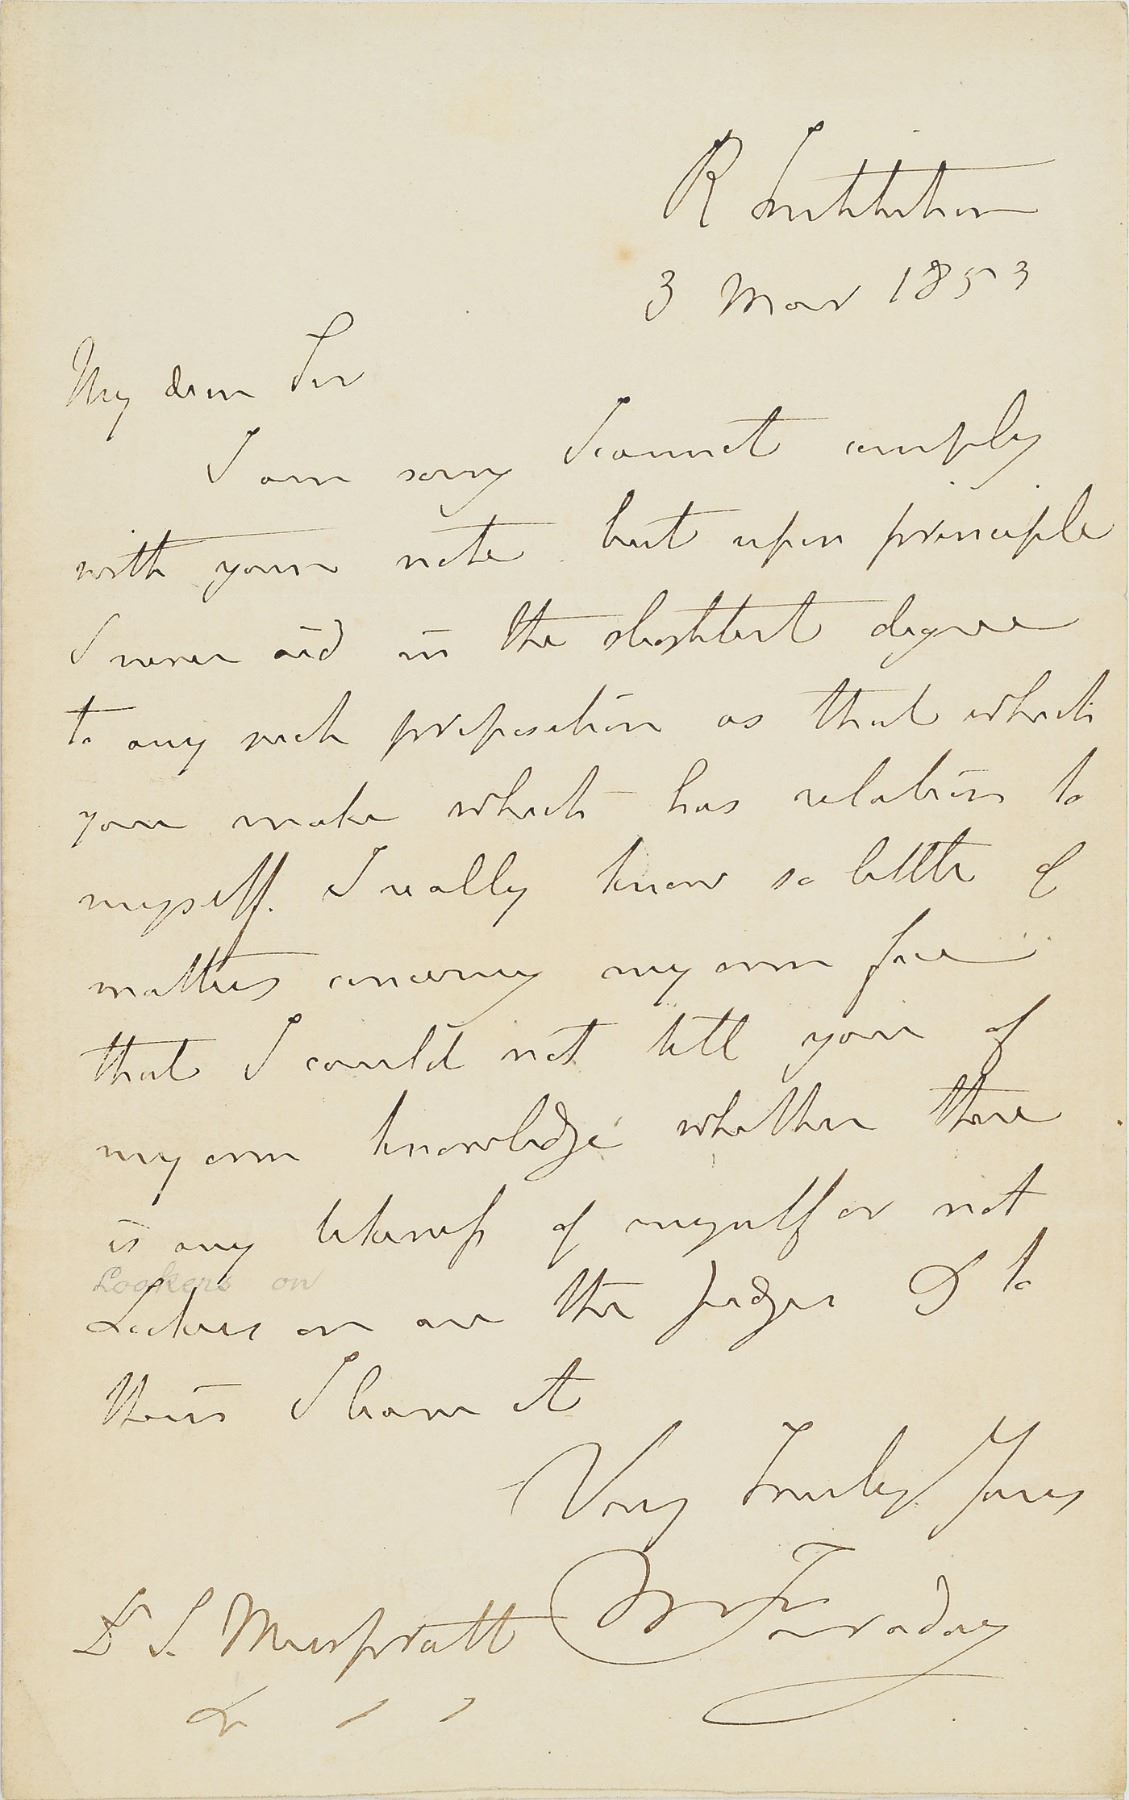 R Institution
3 Mar 1853
My dear Sir
I am sorry I cannot comply
with your note but upon principle
I never aid in the slightest degree
to any such proposition as that which
you make which has relation to
myself. I really know so little of
matters concerning my own face
that I could not tell you of
my own knowledge whether there
is any likeness of myself or not
Lookers on
Lookers on are the judges & to
them I leave it
Very Truly Yours
M Faraday
Dr S. Muspratt
&c